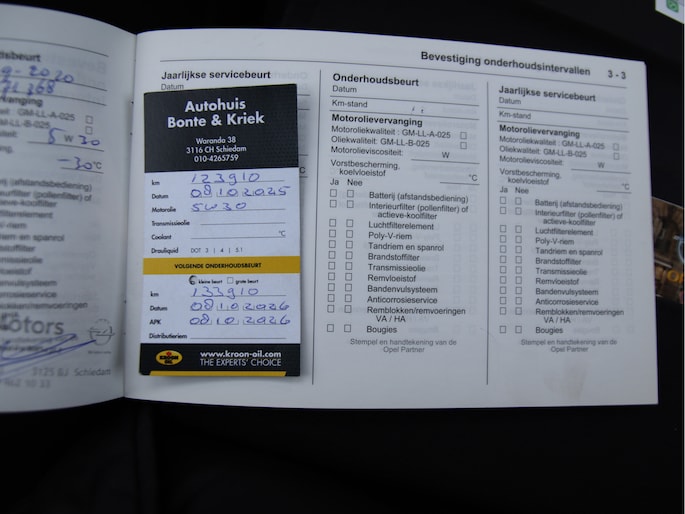 Bevestiging onderhoudsintervallen 3 - 3
-2020
W 30
-30 °C
(afstandsbediening)
(pollenfilter) of
actieve-koolfilter
filterelement
riem en spanrol
stoffilter
missieolie
vloeistof
Bandenvulsysteem
Anticorrosieservice
blokken/remvoeringen
otors
3125 BJ Schiedam
Jaarlijkse servicebeurt
Datum
Autohuis
Bonte & Kriek
Waranda 38
3116 CH Schiedam
010-4265759
km 123910
Datum 08.10.2025
Motorolie 5W30
Transmissieolie
Coolant °C
Drouliquid DOT 3 | 4 | 5.1
VOLGENDE ONDERHOUDSBEURT
kleine beurt grote beurt
km 133910
Datum 08.10.2026
APK 08.10.2026
Distributieriem
KROON OIL www.kroon-oil.com
THE EXPERTS' CHOICE
Onderhoudsbeurt
Datum
Km-stand
Motorolievervanging
Motoroliekwaliteit : GM-LL-A-025
Oliekwaliteit : GM-LL-B-025
Motorolieviscositeit: W
Vorstbescherming,
koelvloeistof °C
Ja Nee
Batterij (afstandsbediening)
Interieurfilter (pollenfilter) of
actieve-koolfilter
Luchtfilterelement
Poly-V-riem
Tandriem en spanrol
Brandstoffilter
Transmissieolie
Remvloeistof
Bandenvulsysteem
Anticorrosieservice
Remblokken/remvoeringen
VA / HA
Bougies
Stempel en handtekening van de
Opel Partner
Jaarlijkse servicebeurt
Datum
Km-stand
Motorolievervanging
Motoroliekwaliteit : GM-LL-A-025
Oliekwaliteit : GM-LL-B-025
Motorolieviscositeit: W
Vorstbescherming,
koelvloeistof °C
Ja Nee
Batterij (afstandsbediening)
Interieurfilter (pollenfilter) of
actieve-koolfilter
Luchtfilterelement
Poly-V-riem
Tandriem en spanrol
Brandstoffilter
Transmissieolie
Remvloeistof
Bandenvulsysteem
Anticorrosieservice
Remblokken/remvoeringen
VA / HA
Bougies
Stempel en handtekening van de
Opel Partner